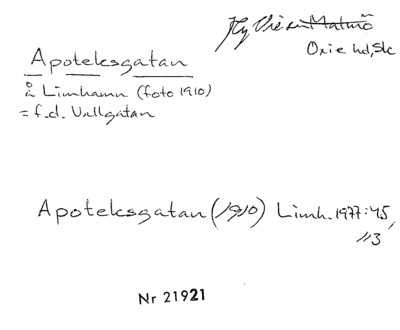 Hyllie Malmö
Oxie hd, Sk
Apoteksgatan
å Limhamn (foto 1910)
= f.d. Vallgatan
Apoteksgatan (1910) Limh. 1977:45,
113
Nr 21921